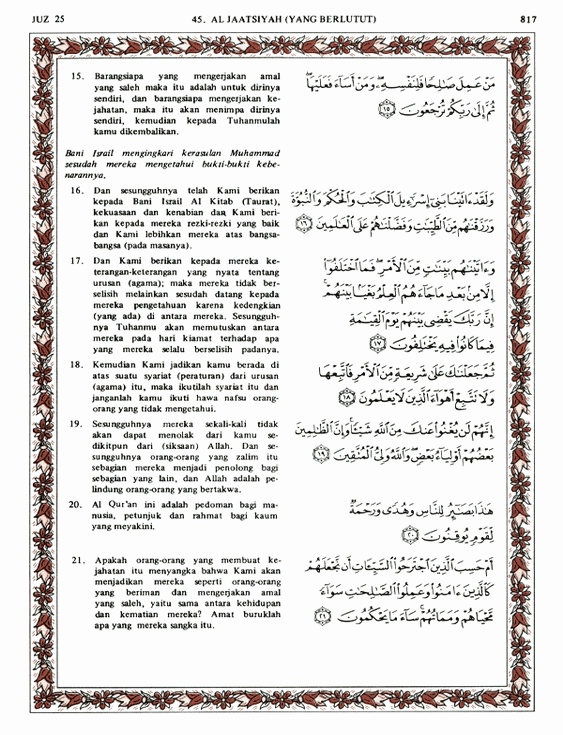 JUZ 25
45. AL JAATSIYAH (YANG BERLUTUT)
817
15. Barangsiapa yang mengerjakan amal
yang saleh maka itu adalah untuk dirinya
sendiri, dan barangsiapa mengerjakan ke-
jahatan, maka itu akan menimpa dirinya
sendiri, kemudian kepada Tuhanmulah
kamu dikembalikan.
مَنْ عَمِلَ صَٰلِحًا فَلِنَفْسِهِۦ ۖ وَمَنْ أَسَآءَ فَعَلَيْهَا ۖ
ثُمَّ إِلَىٰ رَبِّكُمْ تُرْجَعُونَ ١٥
Bani Israil mengingkari kerasulan Muhammad
sesudah mereka mengetahui bukti-bukti kebe-
narannya.
16. Dan sesungguhnya telah Kami berikan
kepada Bani Israil Al Kitab (Taurat),
kekuasaan dan kenabian dan Kami beri-
kan kepada mereka rezki-rezki yang baik
dan Kami lebihkan mereka atas bangsa-
bangsa (pada masanya).
وَلَقَدْ ءَاتَيْنَا بَنِىٓ إِسْرَٰٓءِيلَ ٱلْكِتَٰبَ وَٱلْحُكْمَ وَٱلنُّبُوَّةَ
وَرَزَقْنَٰهُم مِّنَ ٱلطَّيِّبَٰتِ وَفَضَّلْنَٰهُمْ عَلَى ٱلْعَٰلَمِينَ ١٦
17. Dan Kami berikan kepada mereka ke-
terangan-keterangan yang nyata tentang
urusan (agama); maka mereka tidak ber-
selisih melainkan sesudah datang kepada
mereka pengetahuan karena kedengkian
(yang ada) di antara mereka. Sesungguh-
nya Tuhanmu akan memutuskan antara
mereka pada hari kiamat terhadap apa
yang mereka selalu berselisih padanya.
وَءَاتَيْنَٰهُم بَيِّنَٰتٍ مِّنَ ٱلْأَمْرِ ۖ فَمَا ٱخْتَلَفُوٓا۟
إِلَّا مِنۢ بَعْدِ مَا جَآءَهُمُ ٱلْعِلْمُ بَغْيًۢا بَيْنَهُمْ ۚ
إِنَّ رَبَّكَ يَقْضِى بَيْنَهُمْ يَوْمَ ٱلْقِيَٰمَةِ
فِيمَا كَانُوا۟ فِيهِ يَخْتَلِفُونَ ١٧
18. Kemudian Kami jadikan kamu berada di
atas suatu syariat (peraturan) dari urusan
(agama) itu, maka ikutilah syariat itu dan
janganlah kamu ikuti hawa nafsu orang-
orang yang tidak mengetahui.
ثُمَّ جَعَلْنَٰكَ عَلَىٰ شَرِيعَةٍ مِّنَ ٱلْأَمْرِ فَٱتَّبِعْهَا
وَلَا تَتَّبِعْ أَهْوَآءَ ٱلَّذِينَ لَا يَعْلَمُونَ ١٨
19. Sesungguhnya mereka sekali-kali tidak
akan dapat menolak dari kamu se-
dikitpun dari (siksaan) Allah. Dan se-
sungguhnya orang-orang yang zalim itu
sebagian mereka menjadi penolong bagi
sebagian yang lain, dan Allah adalah pe-
lindung orang-orang yang bertakwa.
إِنَّهُمْ لَن يُغْنُوا۟ عَنكَ مِنَ ٱللَّهِ شَيْـًٔا ۚ وَإِنَّ ٱلظَّٰلِمِينَ
بَعْضُهُمْ أَوْلِيَآءُ بَعْضٍ ۖ وَٱللَّهُ وَلِىُّ ٱلْمُتَّقِينَ ١٩
20. Al Qur'an ini adalah pedoman bagi ma-
nusia, petunjuk dan rahmat bagi kaum
yang meyakini.
هَٰذَا بَصَٰٓئِرُ لِلنَّاسِ وَهُدًى وَرَحْمَةٌ
لِّقَوْمٍ يُوقِنُونَ ٢٠
21. Apakah orang-orang yang membuat ke-
jahatan itu menyangka bahwa Kami akan
menjadikan mereka seperti orang-orang
yang beriman dan mengerjakan amal
yang saleh, yaitu sama antara kehidupan
dan kematian mereka? Amat buruklah
apa yang mereka sangka itu.
أَمْ حَسِبَ ٱلَّذِينَ ٱجْتَرَحُوا۟ ٱلسَّيِّـَٔاتِ أَن نَّجْعَلَهُمْ
كَٱلَّذِينَ ءَامَنُوا۟ وَعَمِلُوا۟ ٱلصَّٰلِحَٰتِ سَوَآءً
مَّحْيَاهُمْ وَمَمَاتُهُمْ ۚ سَآءَ مَا يَحْكُمُونَ ٢١